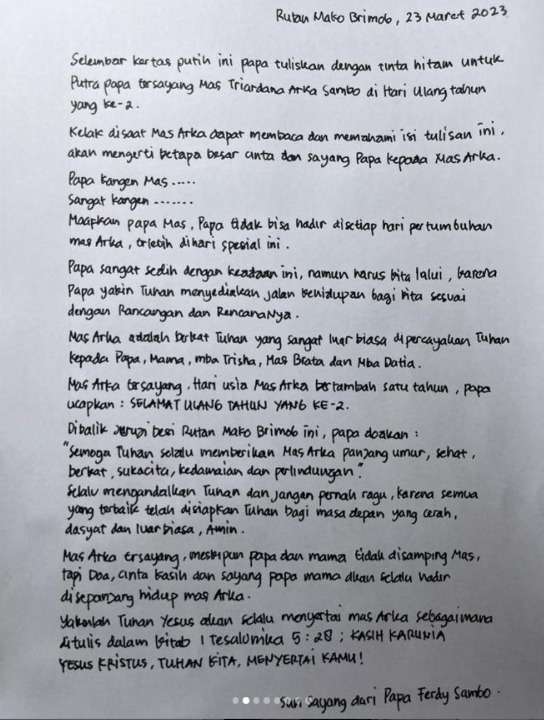 Rutan Mako Brimob, 23 Maret 2023
Selembar kertas putih ini papa tuliskan dengan tinta hitam untuk
Putra papa tersayang Mas Triardana Arka Sambo di Hari Ulang tahun
yang ke-2.
Kelak disaat Mas Arka dapat membaca dan memahami isi tulisan ini,
akan mengerti betapa besar cinta dan sayang Papa kepada Mas Arka.
Papa kangen Mas .....
Sangat kangen .......
Maapkan papa Mas, Papa tidak bisa hadir disetiap hari pertumbuhan
mas Arka, trlebih dihari spesial ini.
Papa sangat sedih dengan keadaan ini, namun harus kita lalui, karena
Papa yakin Tuhan menyediakan jalan kehidupan bagi kita sesuai
dengan Rancangan dan RencanaNya.
Mas Arka adalah berkat Tuhan yang sangat luar biasa dipercayakan Tuhan
kepada Papa, Mama, mba Trisha, Mas Brata dan Mba Datia.
Mas Arka tersayang, Hari usia Mas Arka bertambah satu tahun, papa
ucapkan : SELAMAT ULANG TAHUN YANG KE-2.
Dibalik jeruji besi Rutan Mako Brimob ini, papa doakan :
"Semoga Tuhan selalu memberikan Mas Arka panjang umur, sehat,
berkat, sukacita, kedamaian dan perlindungan".
Selalu mengandalkan Tuhan dan jangan pernah ragu, karena semua
yang terbaik telah disiapkan Tuhan bagi masa depan yang cerah,
dasyat dan luar biasa, Amin.
Mas Arka tersayang, meskipun papa dan mama tidak disamping Mas,
tapi Doa, cinta kasih dan sayang papa mama akan selalu hadir
disepanjang hidup mas Arka.
Yakinlah Tuhan Yesus akan selalu menyertai mas Arka sebagaimana
ditulis dalam kitab 1 Tesalonika 5:28 ; KASIH KARUNIA
YESUS KRISTUS, TUHAN KITA, MENYERTAI KAMU!
Sun Sayang dari Papa Ferdy Sambo.